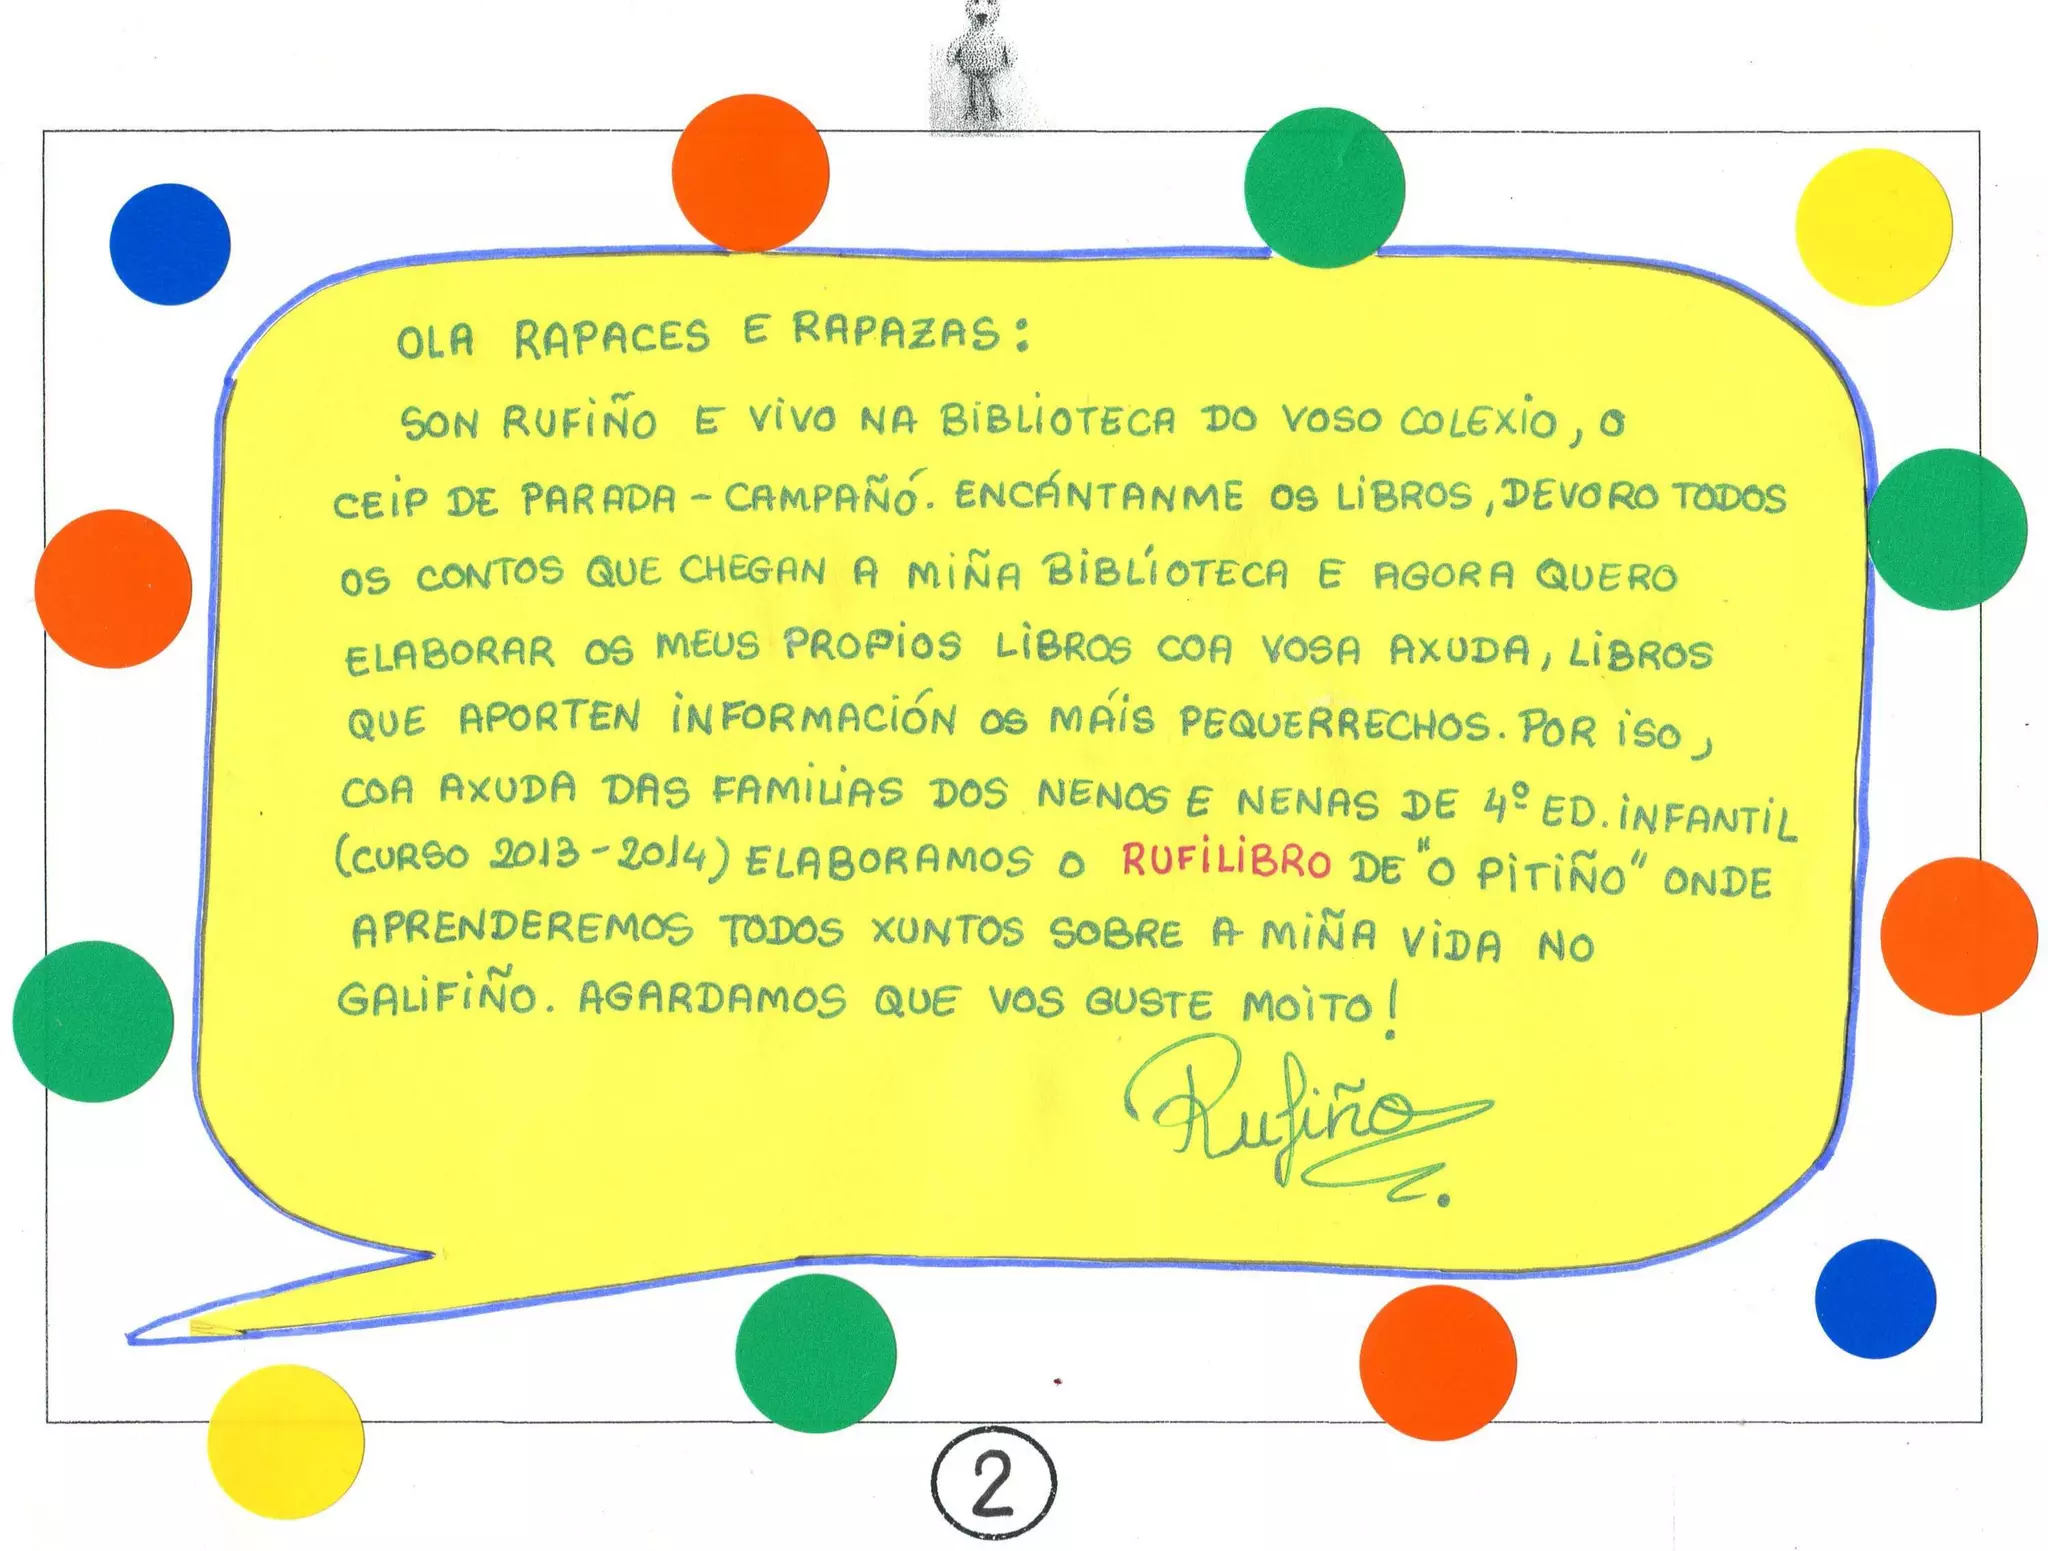 OLA RAPACES E RAPAZAS:
SON RUFIÑO E VIVO NA BIBLIOTECA DO VOSO COLEXIO, O
CEIP DE PARADA - CAMPAÑÓ. ENCÁNTANME OS LIBROS, DEVORO TODOS
OS CONTOS QUE CHEGAN A MIÑA BIBLÍOTECA E AGORA QUERO
ELABORAR OS MEUS PROPIOS LIBROS COA VOSA AXUDA, LIBROS
QUE APORTEN INFORMACIÓN OS MÁIS PEQUERRECHOS. POR ISO,
COA AXUDA DAS FAMILIAS DOS NENOS E NENAS DE 4º ED. INFANTIL
(CURSO 2013-2014) ELABORAMOS O RUFILIBRO DE "O PITIÑO" ONDE
APRENDEREMOS TODOS XUNTOS SOBRE A MIÑA VIDA NO
GALIFIÑO. AGARDAMOS QUE VOS GUSTE MOITO!
Rufiño
2